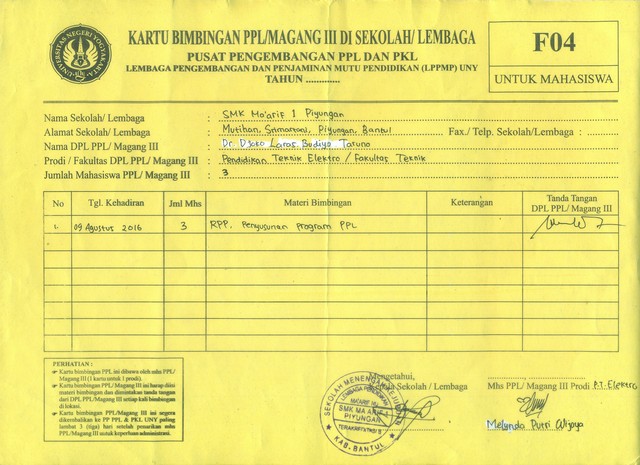 KARTU BIMBINGAN PPL/MAGANG III DI SEKOLAH/ LEMBAGA
PUSAT PENGEMBANGAN PPL DAN PKL
LEMBAGA PENGEMBANGAN DAN PENJAMINAN MUTU PENDIDIKAN (LPPMP) UNY
TAHUN .............
F04
UNTUK MAHASISWA
UNIVERSITAS NEGERI YOGYAKARTA
Nama Sekolah/ Lembaga : SMK Ma'arif 1 Piyungan
Alamat Sekolah/ Lembaga : Mutihan, Srimartani, Piyungan, Bantul Fax./ Telp. Sekolah/Lembaga :
Nama DPL PPL/ Magang III : Dr. Djoko Laras Budiyo Taruno
Prodi / Fakultas DPL PPL/ Magang III : Pendidikan Teknik Elektro / Fakultas Teknik
Jumlah Mahasiswa PPL/ Magang III : 3
No Tgl. Kehadiran Jml Mhs Materi Bimbingan Keterangan Tanda Tangan DPL PPL/ Magang III
1. 09 Agustus 2016 3 RPP, Penyusunan Program PPL
PERHATIAN :
Kartu bimbingan PPL ini dibawa oleh mhs PPL/
Magang III (1 kartu untuk 1 prodi).
Kartu bimbingan PPL/ Magang III ini harap diisi
materi bimbingan dan dimintakan tanda tangan
dari DPL PPL/ Magang III setiap kali bimbingan
di lokasi.
Kartu bimbingan PPL/ Magang III ini segera
dikembalikan ke PP PPL & PKL UNY paling
lambat 3 (tiga) hari setelah penarikan mhs
PPL/ Magang III untuk keperluan administrasi.
Mengetahui,
Sekolah / Lembaga
SEKOLAH MENENGAH
LEMBAGA PENDIDIKAN
MA'ARIF NU
SMK MA'ARIF 1
PIYUNGAN
TERAKREDITASI B
KAB-BANTUL
Mhs PPL/ Magang III Prodi P.T. Elektro
Melynda Putri Wijaya